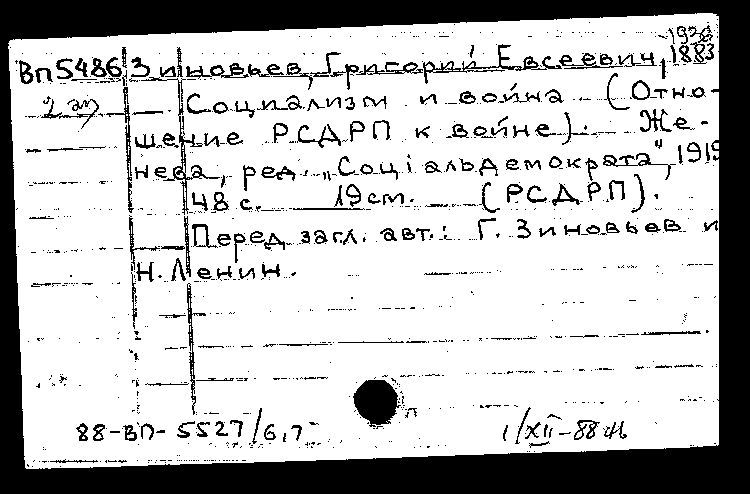 1936
Вп5486 Зиновьев, Григорий Евсеевич, 1883
2 эк
Социализм и война. (Отно-
шение РСДРП к войне). Же-
нева, ред. „Соціальдемократа", 1915
48 с. 19 см. (РСДРП).
Перед загл. авт.: Г. Зиновьев и
Н. Ленин.
п
88-ВП-5527/6,7 1/XII-88